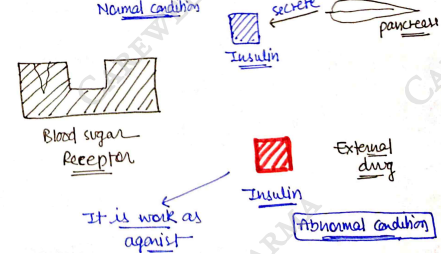 Normal Condition
secrete
pancreas
Insulin
Blood sugar
Receptor
External
drug
Insulin
It is work as
agonist
Abnormal Condition